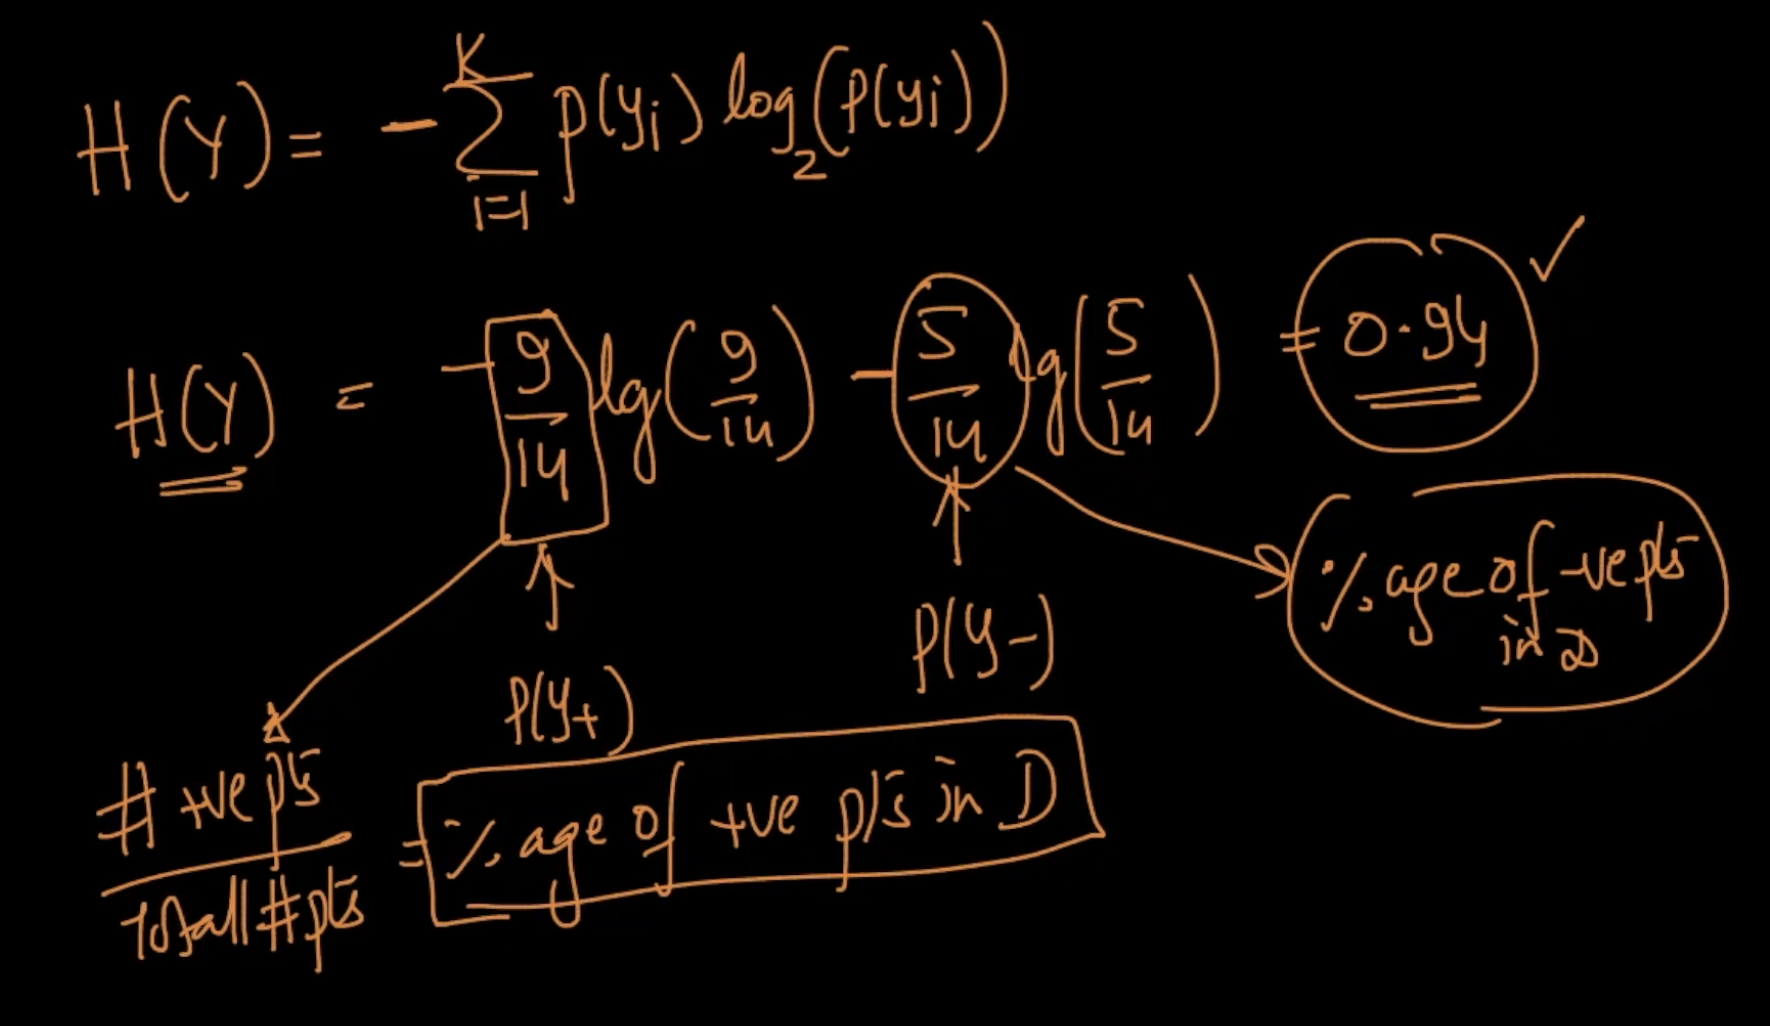 H(Y) = - K Σ i=1 p(yi) log2 (p(yi))
H(Y) = - 9/14 lg(9/14) - 5/14 lg(5/14) = 0.94 ✓
%age of -ve pts
in D
P(Y-)
P(Y+)
# +ve pts
Total # pts
= %age of +ve pts in D